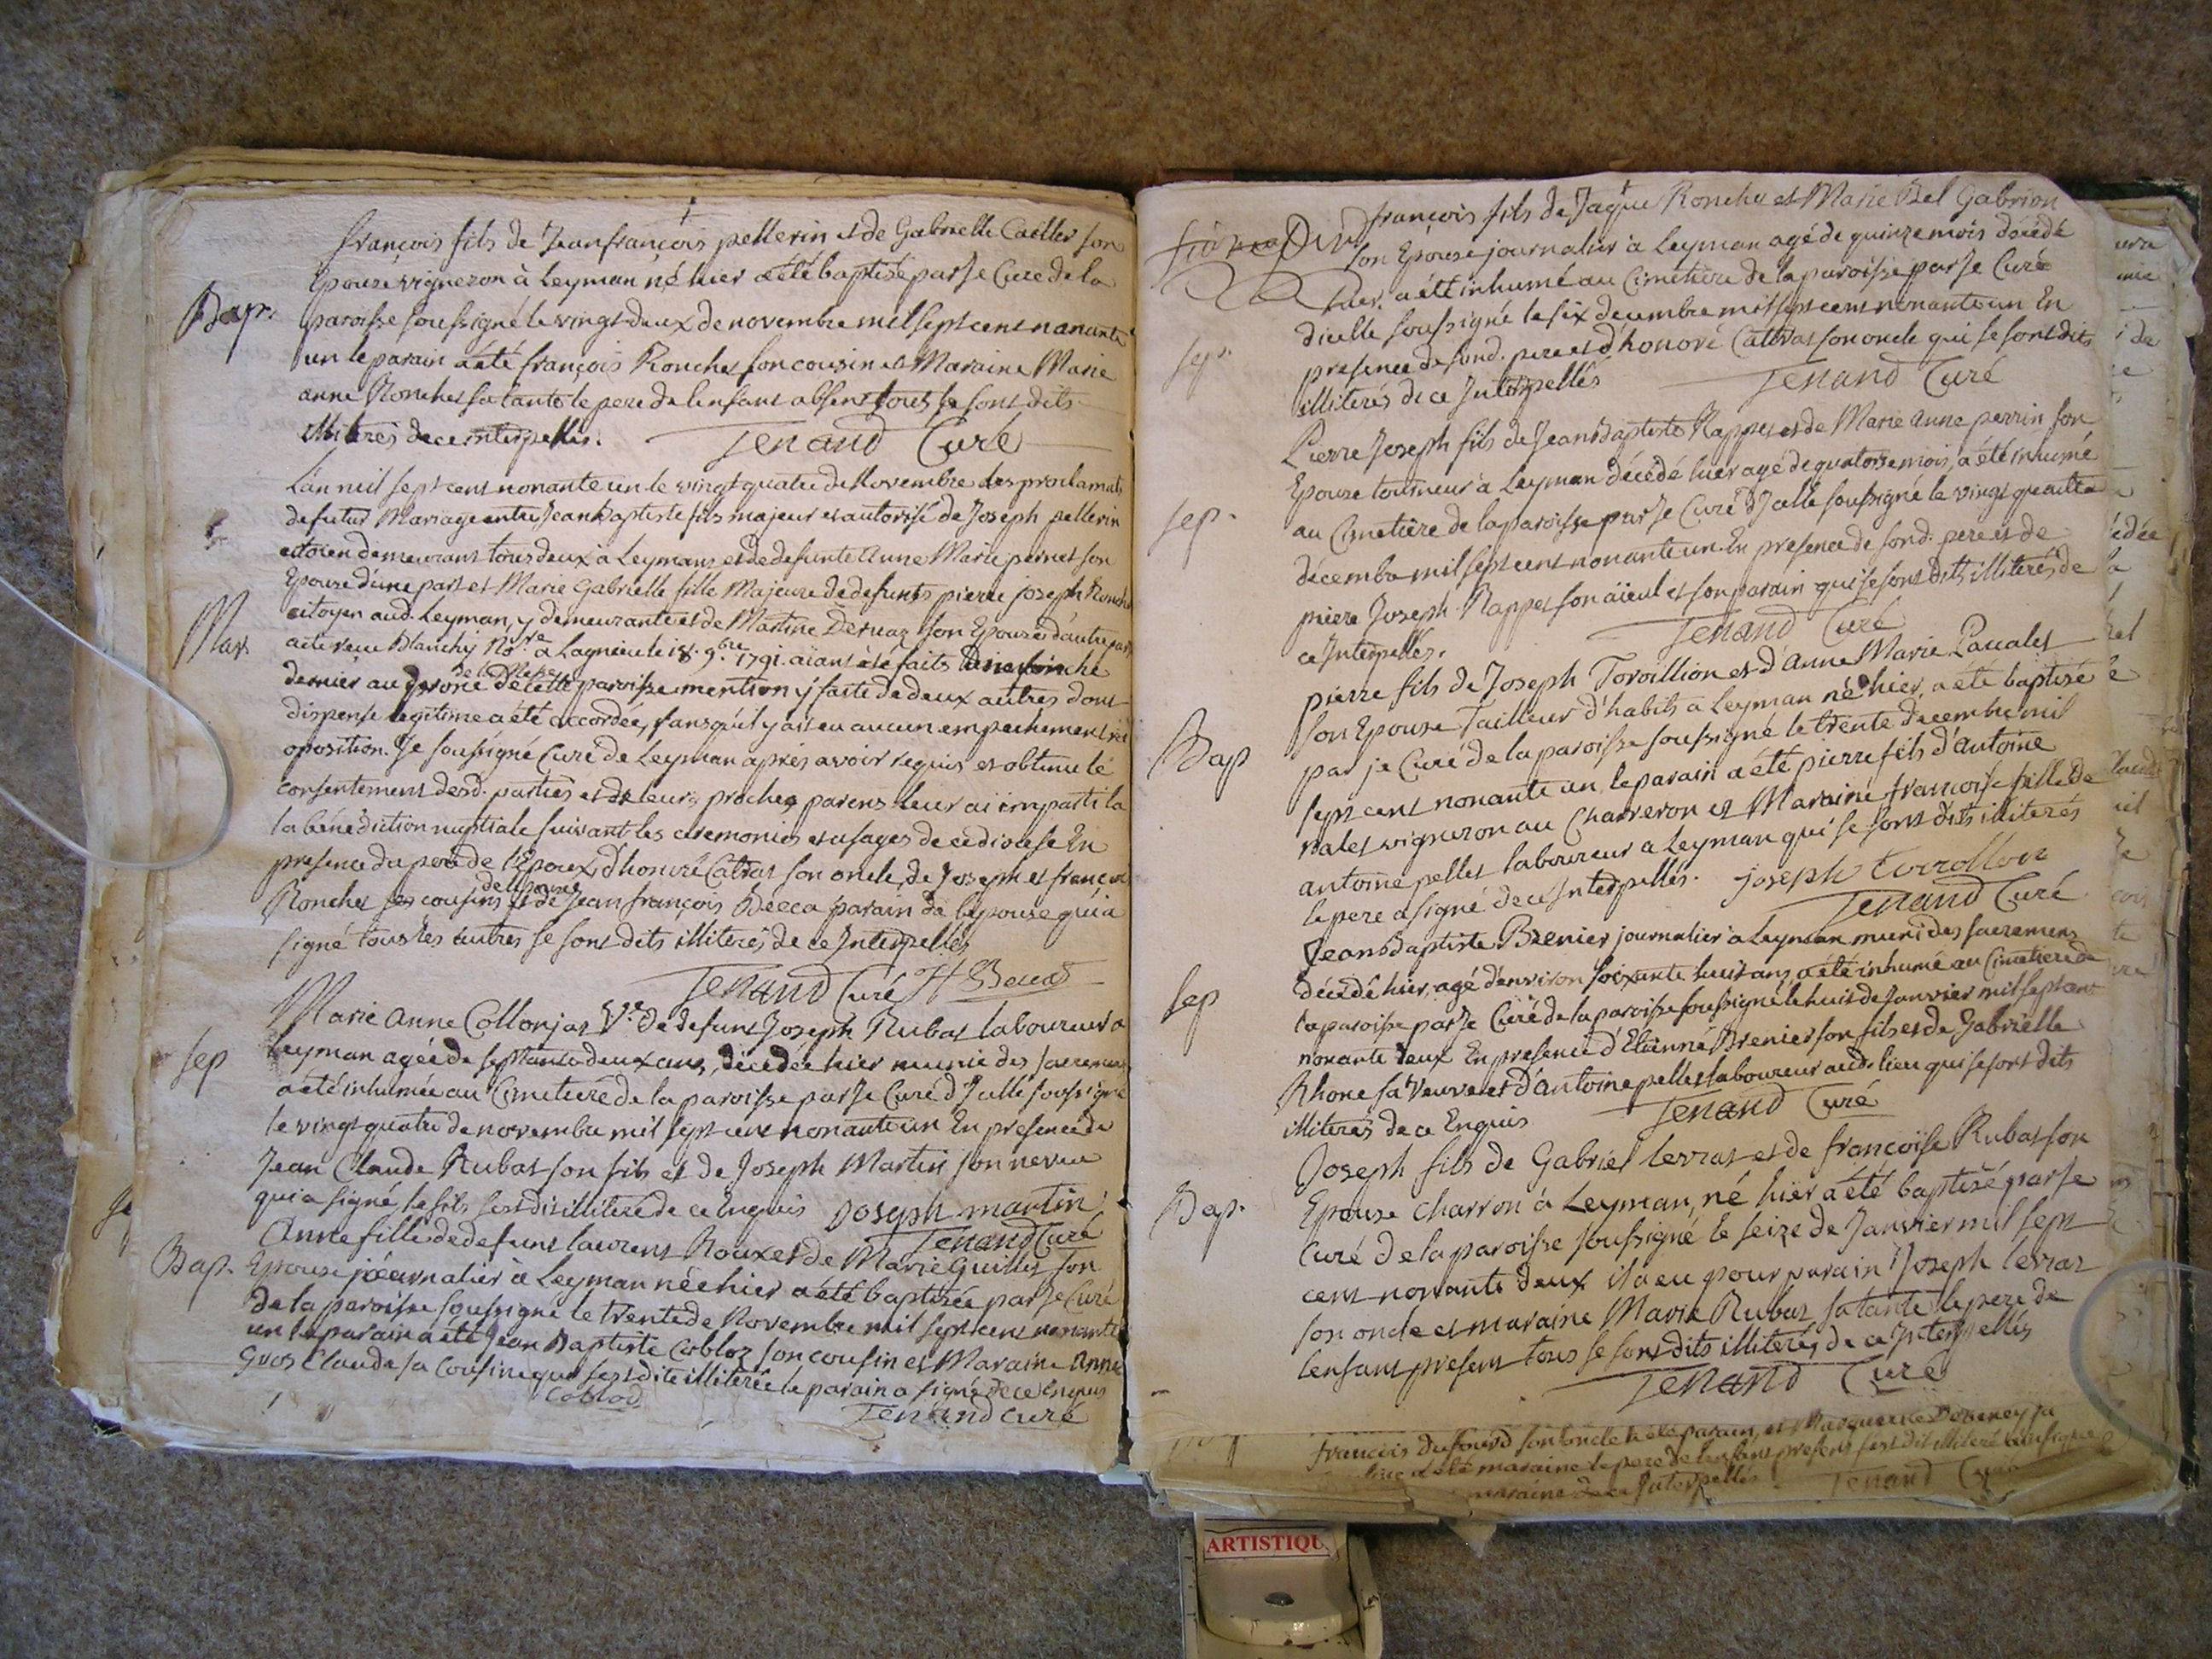 françois fils de Jeanfrançois pellerin et de Gabrielle Cailler son
Bap. Epouze vigneron à Leyman né hier a été baptisé par Je Curé de la
paroisse soussigné le vingt deux de novembre mil sept cent nonante
un le parain a été françois Ronchet son cousin et Maraine Marie
anne Ronchet sa tante le pere de l'enfant absent tous se sont dits
illiterés de ce interpellés. Tenand Curé
L'an mil sept cent nonante un le vingt quatre de Novembre les proclamats
de futur Mariage entre Jean Baptiste fils majeur et autorisé de Joseph pellerin
citoien demeurans tous deux à Leymans et de defunte Anne Marie pernet son
Epouze d'une part et Marie Gabrielle fille Majeure de defunts pierre joseph Ronche
Mar. citoyen aud. Leyman, y demeurante et de Martine Dervaz son Epouze d'autre part
acte reçu Blanchy No.re a Lagnieu le 18. 9.bre 1791. aïant été faits
de la Messe
dernier au prone de cette paroisse mention y faite de deux autres dont
dispense legitime a été accordée, sans qu'il y ait eu aucun empechement ni
oposition. Je soussigné Curé de Leyman après avoir requis et obtenu le
consentement desd. parties et de leurs proches parens leur ai imparti la
la bénédiction nuptiale suivant les ceremonies et usages de ce diocese En
presence du pere de l'Epoux, d'honoré Catras son oncle, de Joseph et françois
de l'epouze
Ronchet ses cousins et de Jean françois Becca parain de lepouze qui a
signé tous les autres se sont dits illiterés de ce Interpellés
Tenand Curé
Marie Anne Collonjaz V.e de defunt Joseph Rubat laboureur a
sep Leyman agée de septante deux ans, décedée hier munie des sacremens
a été inhumée au Cimetiere de la paroisse par Je Curé d'Icelle soussigné
le vingt quatre de novembre mil sept cent nonante un En presence de
Jean Claude Rubat son fils et de Joseph Martin son neveu
qui a signé, le fils s'est dit illiteré de ce Enquis Joseph martin
Tenand Curé
Anne fille de defunt laurens Roux et de Marie Guillet son
Bap. Epouse journalier à Leyman née hier a été baptisée par Je Curé
de la paroisse soussigné le trente de Novembre mil sept cent nonante
un le parain a été Jean Baptiste Cobloz son cousin et Maraine Anne
Gros Claude sa Cousine qui s'est dite illiterée le parain a signé de ce Enquis
Coblod
Tenand curé
françois fils de Jaque Ronchet et Marie Bel Gabrion
son Epouze journalier à Leyman agé de quinze mois décédé
hier, a été inhumé au Cimetiere de la paroisse par Je Curé
d'icelle soussigné le six decembre mil sept cent nonante un En
sep. presence de sond. pere et d'honoré Cattras son oncle qui se sont dits
illiterés de ce Interpellés Tenand Curé
Pierre Joseph fils de Jean Baptiste Rappet et de Marie Anne perrin son
Epouze tourneur à Leyman décédé hier agé de quatorze mois, a été inhumé
sep. au Cimetière de la paroisse par Je Curé d'Icelle soussigné le vingt quatre
décembre mil sept cent nonante un. En presence de sond. pere et de
pierre Joseph Rappet son aïeul et son parain qui se sont dits illiterés de
ce Interpellés. Tenand Curé
pierre fils de Joseph Torollion et d'Anne Marie Paualet
son Epouse Tailleur d'habits a Leyman né hier, a été baptisé
Bap par je Curé de la paroisse soussigné le trente decembre mil
sept cent nonante un, le parain a été pierre fils d'antoine
nalet vigneron au Charveron et Maraine francoise fille de
antoine pellet laboureur a Leyman qui se sont dits illiterés
le pere a signé de ce Interpellés. joseph torrollion
Tenand Curé
Jean Baptiste Brenier journalier a Leyman muni des sacremens
sep décédé hier, agé d'environ soixante huit ans, a été inhumé au Cimetiere de
la paroisse par Je Curé de la paroisse soussigné le huit de Janvier mil sept cent
nonante deux En presence d'Etienne Brenier son fils et de Gabrielle
Rhone sa Veuve et d'antoine pellet laboureur aud. lieu qui se sont dits
illiteres de ce Enquis Tenand Curé
Joseph fils de Gabriel levrat et de françoise Rubat son
Bap. Epouse charron à Leyman, né hier a été baptisé par Je
Curé de la paroisse soussigné le seize de Janvier mil sept
cent nonante deux il a eu pour parain Joseph levrat
son oncle et maraine Marie Rubat sa tante le pere de
lenfant present tous se sont dits illiterés de ce Interpellés
Tenand Curé
francois Dufourd son oncle a été parain et Marguerite
a été maraine le pere de l'enfant present s'est dit illiteré
maraine de ce Interpellés Tenand Curé
ARTISTIQU